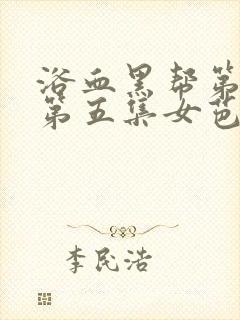 浴血黑帮第
第五集女芭
李民浩